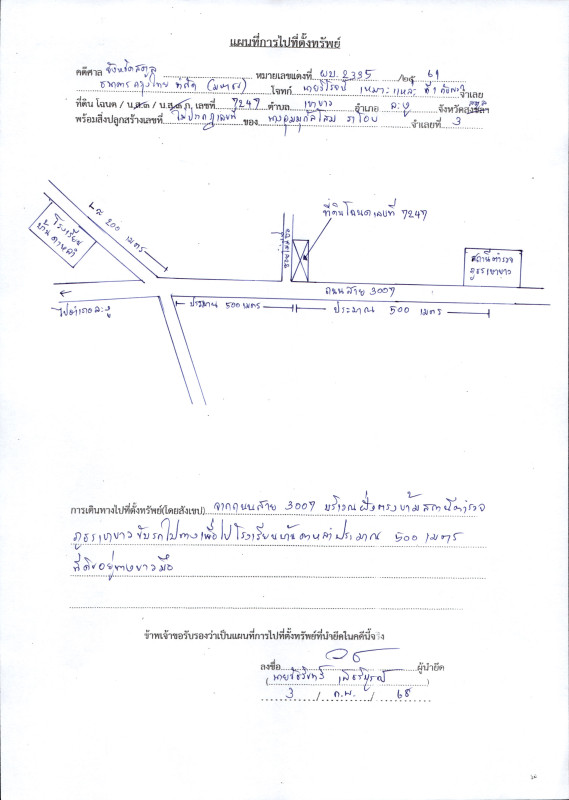 แผนที่การไปที่ตั้งทรัพย์
คดีศาล จังหวัดสตูล หมายเลขแดงที่ ผบ.2395 /๒๕ 61
ธนาคารกรุงไทย จำกัด (มหาชน) โจทก์ นายวิโรจน์ เหมาะแหละ ที่1 กับพวก จำเลย
ที่ดิน โฉนด / น.ส.๓ / น.ส.๓ ก. เลขที่ 7247 ตำบล เขาขาว อำเภอ ละงู จังหวัด สตูล
พร้อมสิ่งปลูกสร้างเลขที่ ไม่ปรากฏเลขที่ ของ จำเลยที่ 3
ที่ดินโฉนดเลขที่ 7247
200 เมตร
โรงเรียน
บ้านดาหลำ
สถานีตำรวจ
ภูธรเขาขาว
ถนนสาย 3007
ประมาณ 500 เมตร
ประมาณ 500 เมตร
ไปอำเภอละงู
การเดินทางไปที่ตั้งทรัพย์(โดยสังเขป) จากถนนสาย 3007 บริเวณฝั่งตรงข้ามสถานีตำรวจ
ภูธรเขาขาวขับรถไปทางเพื่อไปโรงเรียนบ้านดาหลำประมาณ 500 เมตร
ที่ดินอยู่ทางขวามือ
ข้าพเจ้าขอรับรองว่าเป็นแผนที่การไปที่ตั้งทรัพย์ที่นำยึดในคดีนี้จริง
ลงชื่อ ผู้นำยึด
3 / ก.พ. / 68